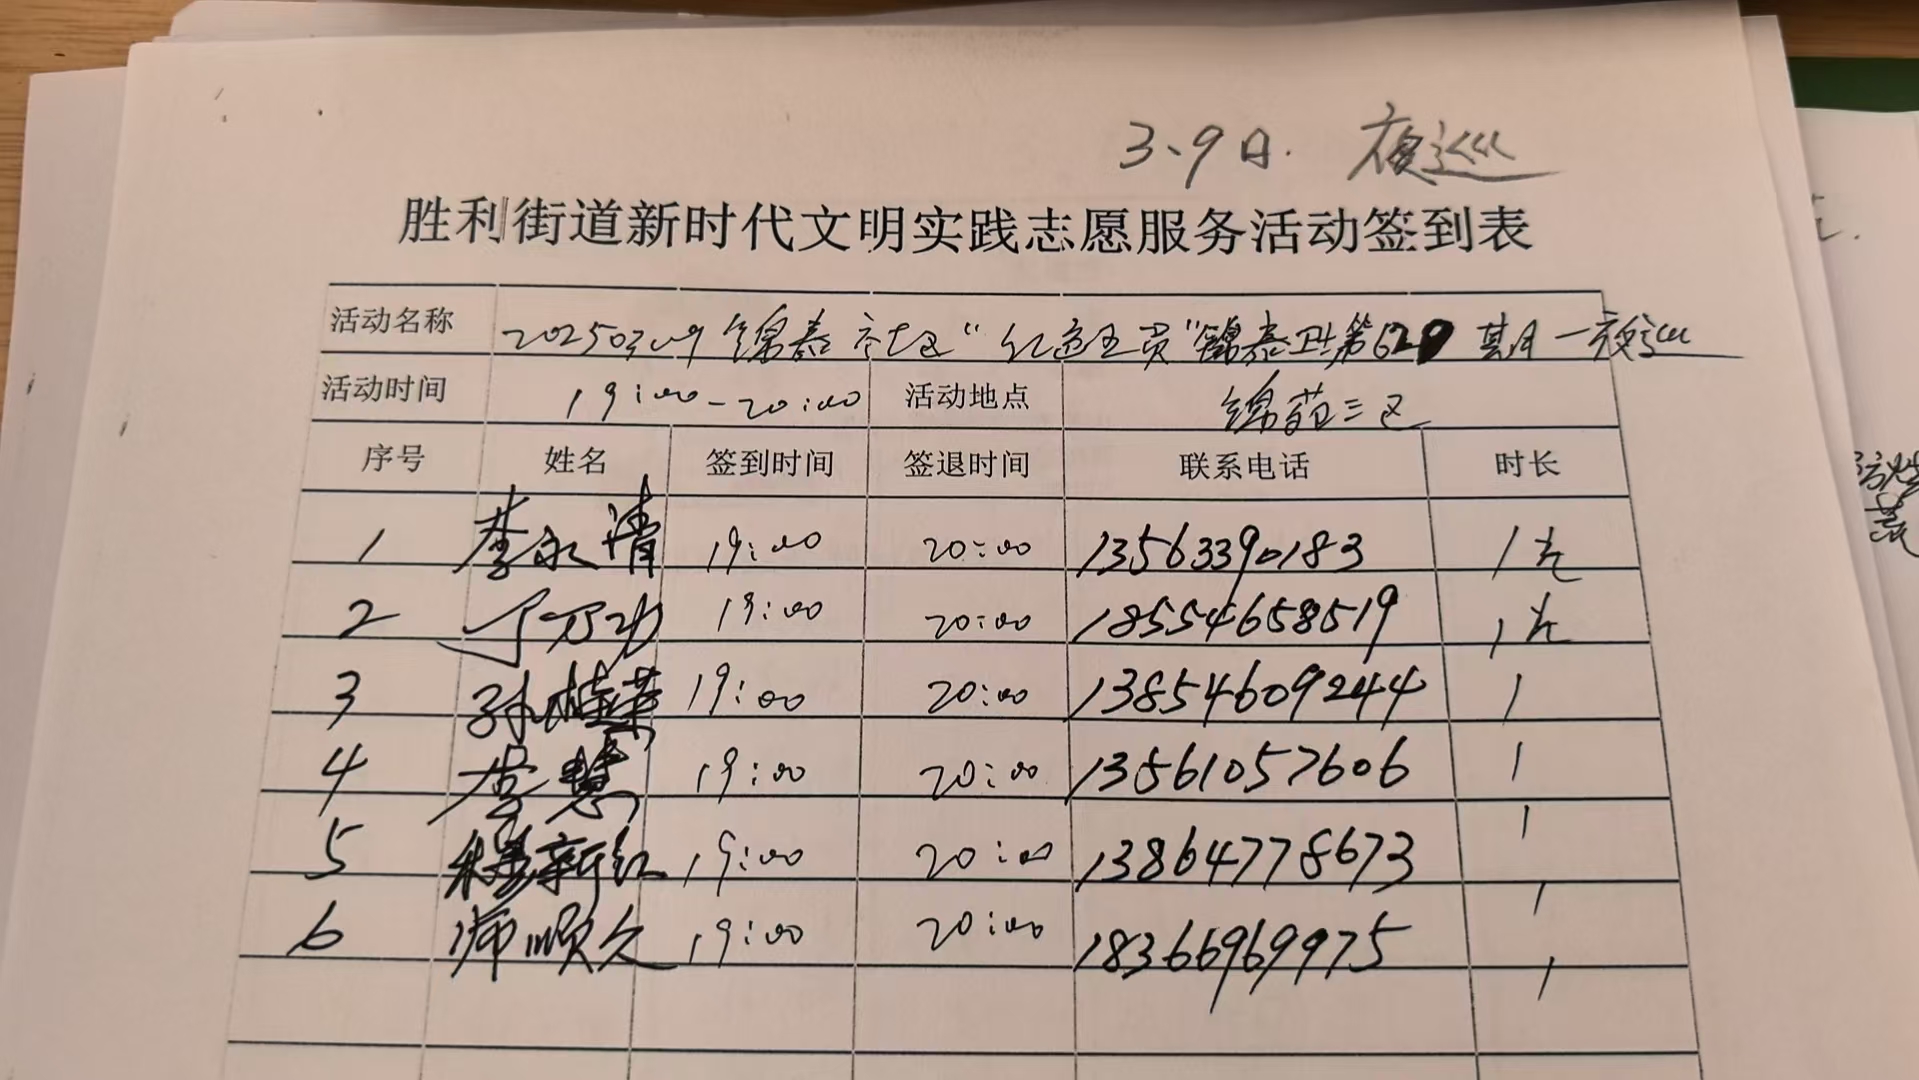 3、9日. 夜巡
胜利街道新时代文明实践志愿服务活动签到表
活动名称 20250309 锦泰社区“红 员”锦泰卫士第629期 一夜巡
活动时间 19:00-20:00 活动地点 锦苑三区
序号 姓名 签到时间 签退时间 联系电话 时长
1 李永清 19:00 20:00 13563390183 1
2 丁万功 19:00 20:00 18554658519 1
3 孙桂荣 19:00 20:00 13854609244 1
4 李慧 19:00 20:00 13561057606 1
5 新红 19:00 20:00 13864778673 1
6 师顺久 19:00 20:00 18366969975 1